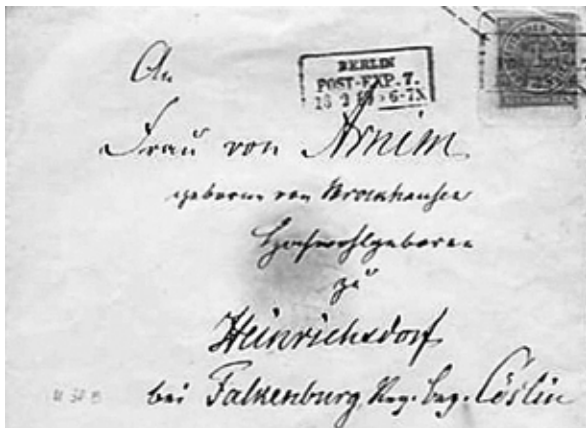 An
BERLIN
POST-EXP. 7.
18 9 6-7N
Frau von Arnim
geboren von Brockhausen
Hochwohlgeboren
zu
Heinrichsdorf
bei Falkenburg, Reg. Bez. Cöslin